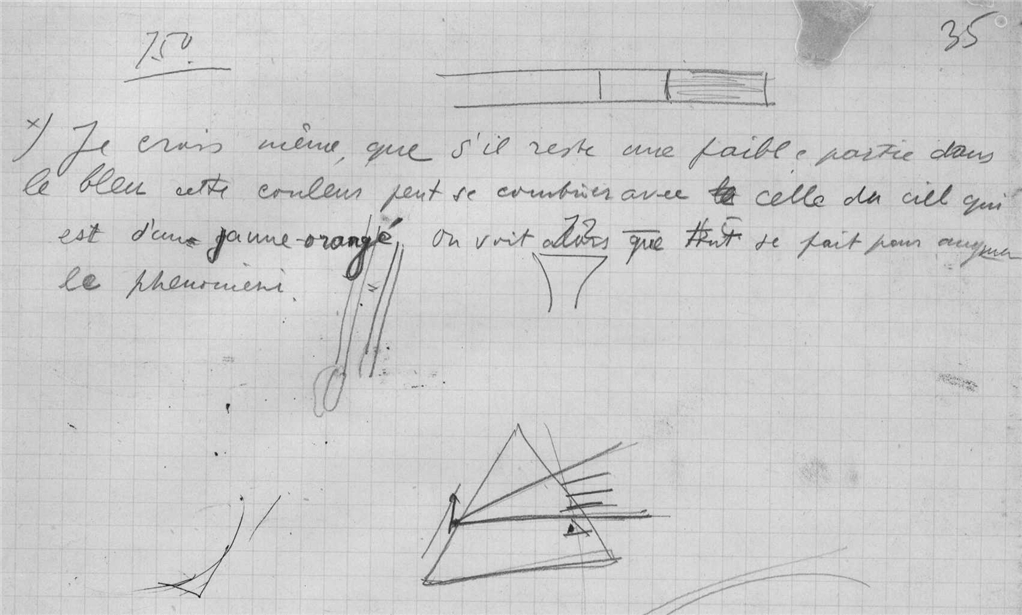 35
750
x) Je crois même, que s'il reste une faible partie dans
le bleu cette couleur peut se combiner avec celle du ciel qui
est d'une jaune-orangé. On voit alors que tout se fait pour
le phenomène.